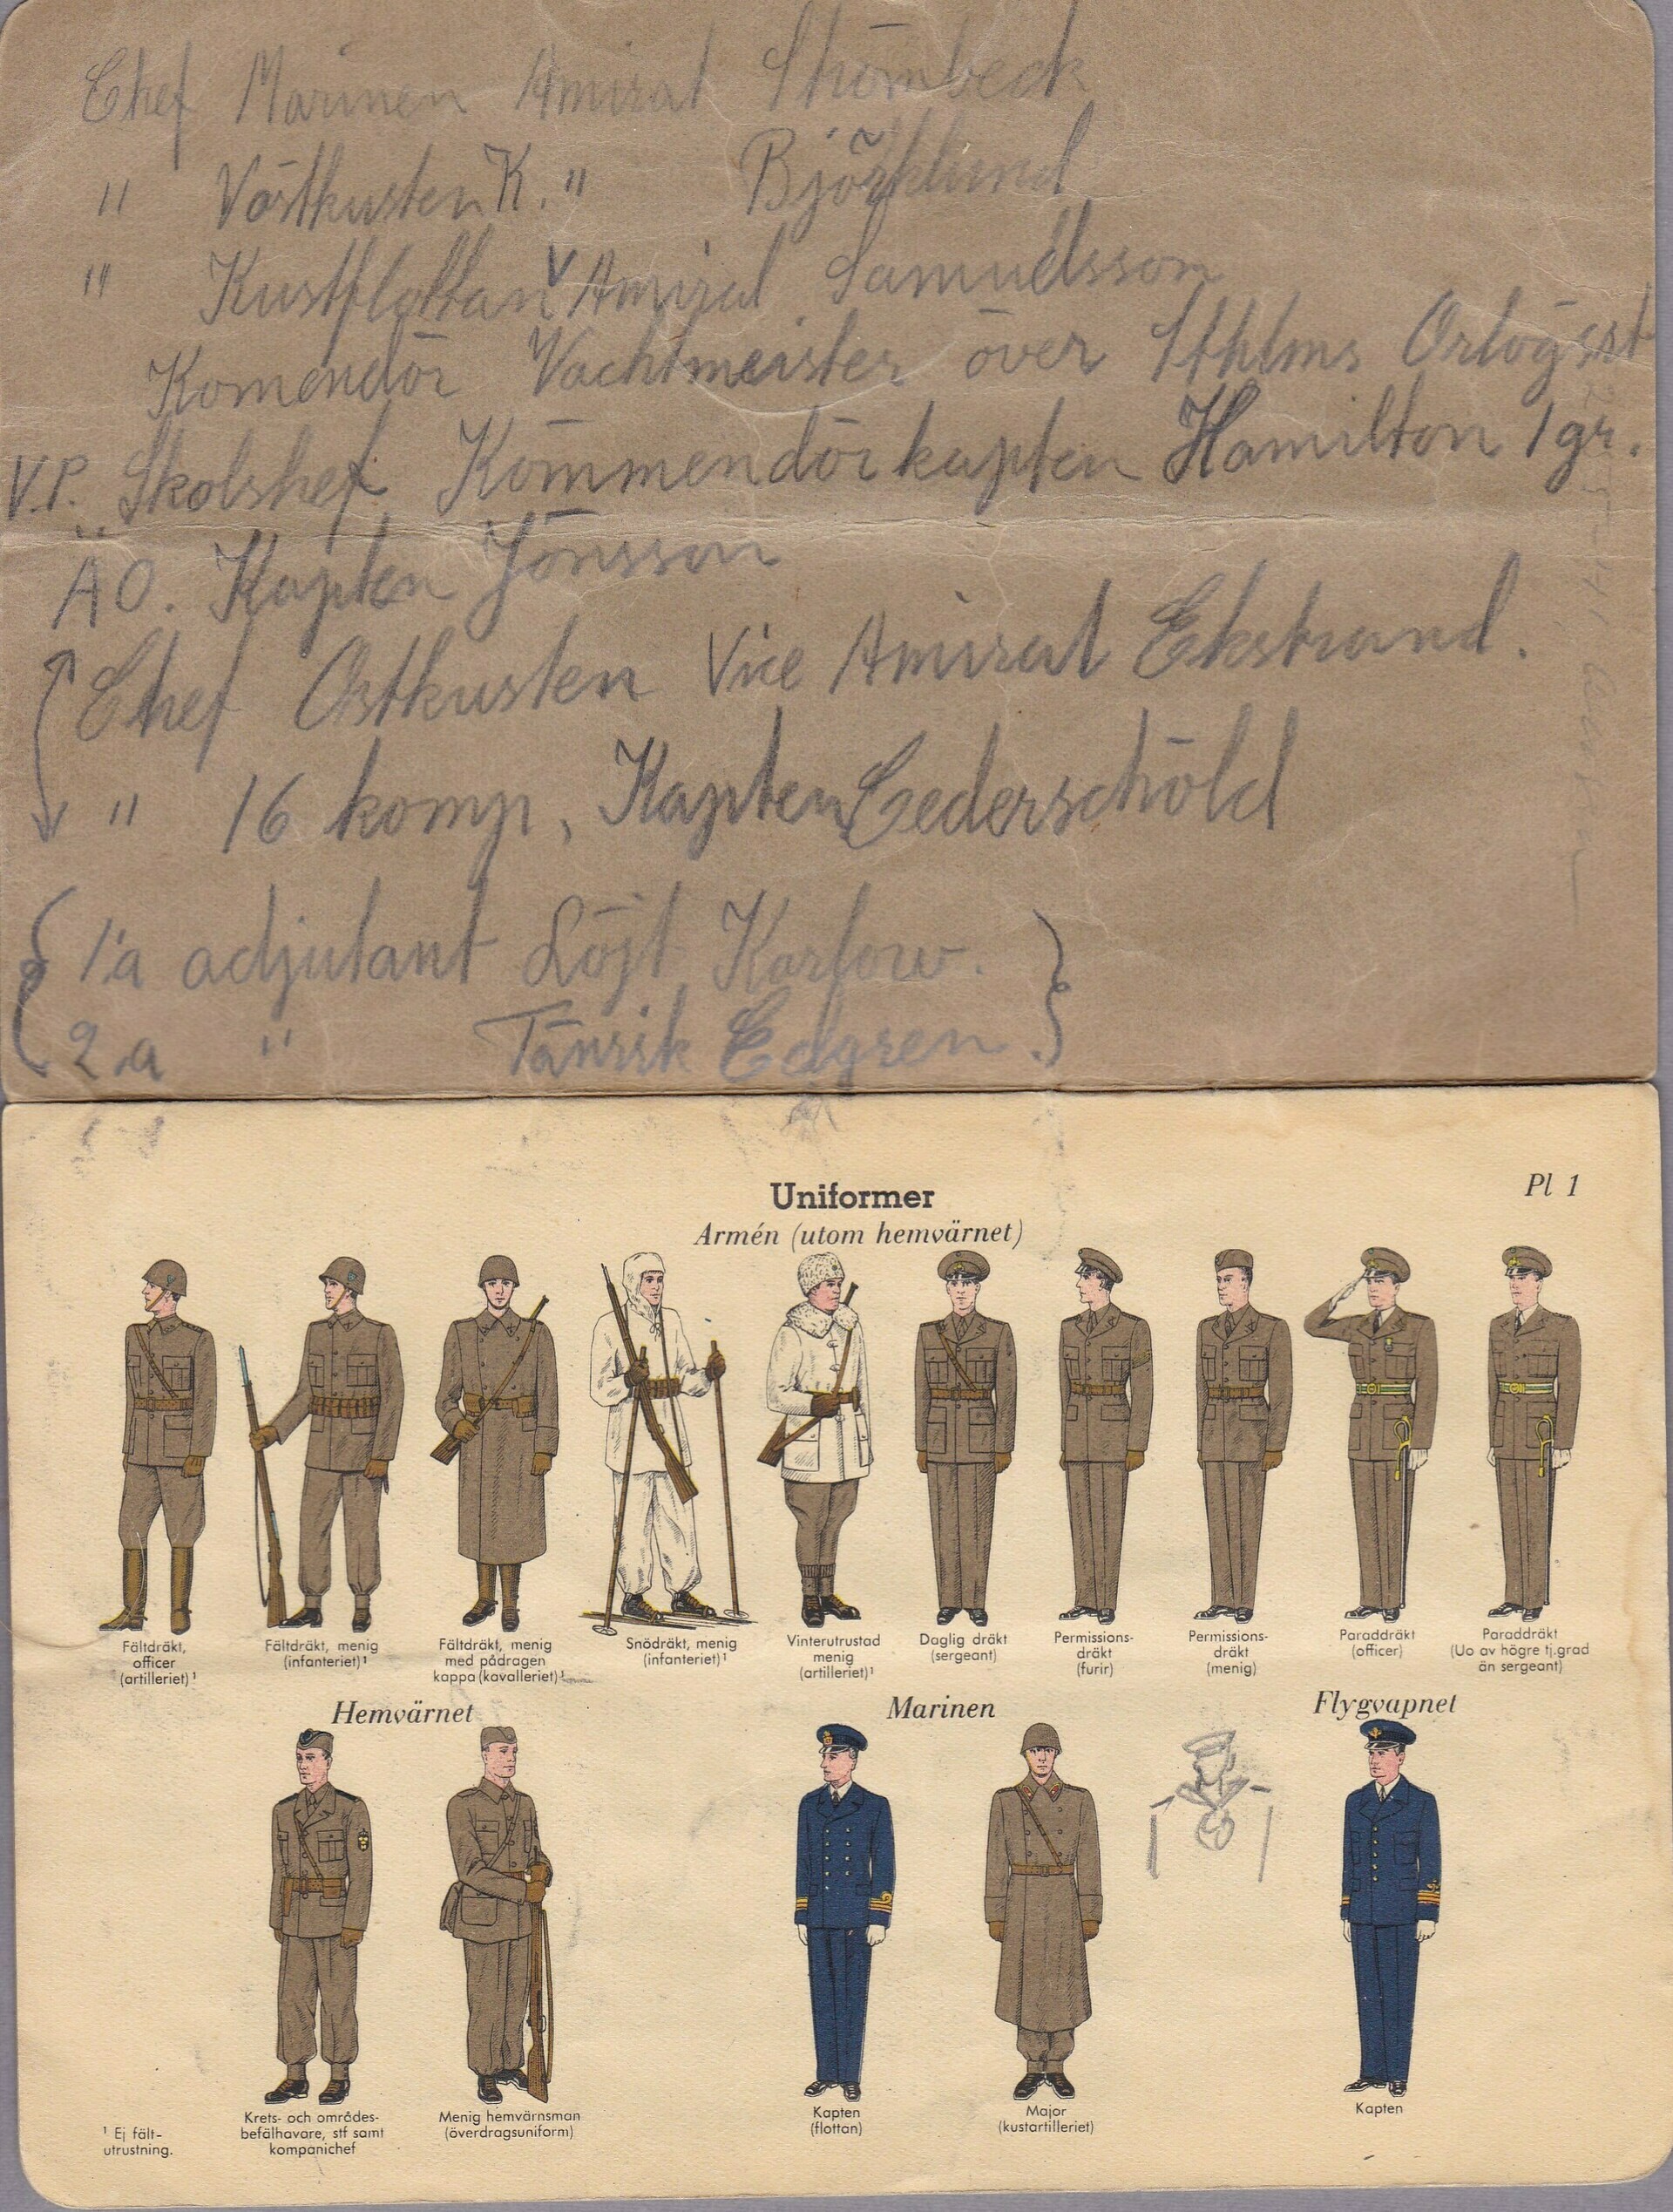 Chef Marinen Amiral Strömbeck
" Västkusten K. " Björklund
" Kustflottan V Amiral Samuelsson
Komendör Wachtmeister över Sthlms Örlogsst
V.P. Skolshef Kommendörkapten Hamilton 1 gr.
ÄO. Kapten Jönsson
Chef Ostkusten Vice Amiral Ekstrand.
" 16 komp, Kapten Cederschöld
1'a adjutant Löjt Karlow.
2.a " Fänrik Edgren.
Pl 1
Uniformer
Armén (utom hemvärnet)
Fältdräkt,
officer
(artilleriet)¹
Fältdräkt, menig
(infanteriet)¹
Fältdräkt, menig
med pådragen
kappa (kavalleriet)¹
Snödräkt, menig
(infanteriet)¹
Vinterutrustad
menig
(artilleriet)¹
Daglig dräkt
(sergeant)
Permissions-
dräkt
(furir)
Permissions-
dräkt
(menig)
Paraddräkt
(officer)
Paraddräkt
(Uo av högre tj.grad
än sergeant)
Hemvärnet
Marinen
Flygvapnet
¹ Ej fält-
utrustning.
Krets- och områdes-
befälhavare, stf samt
kompanichef
Menig hemvärnsman
(överdragsuniform)
Kapten
(flottan)
Major
(kustartilleriet)
Kapten